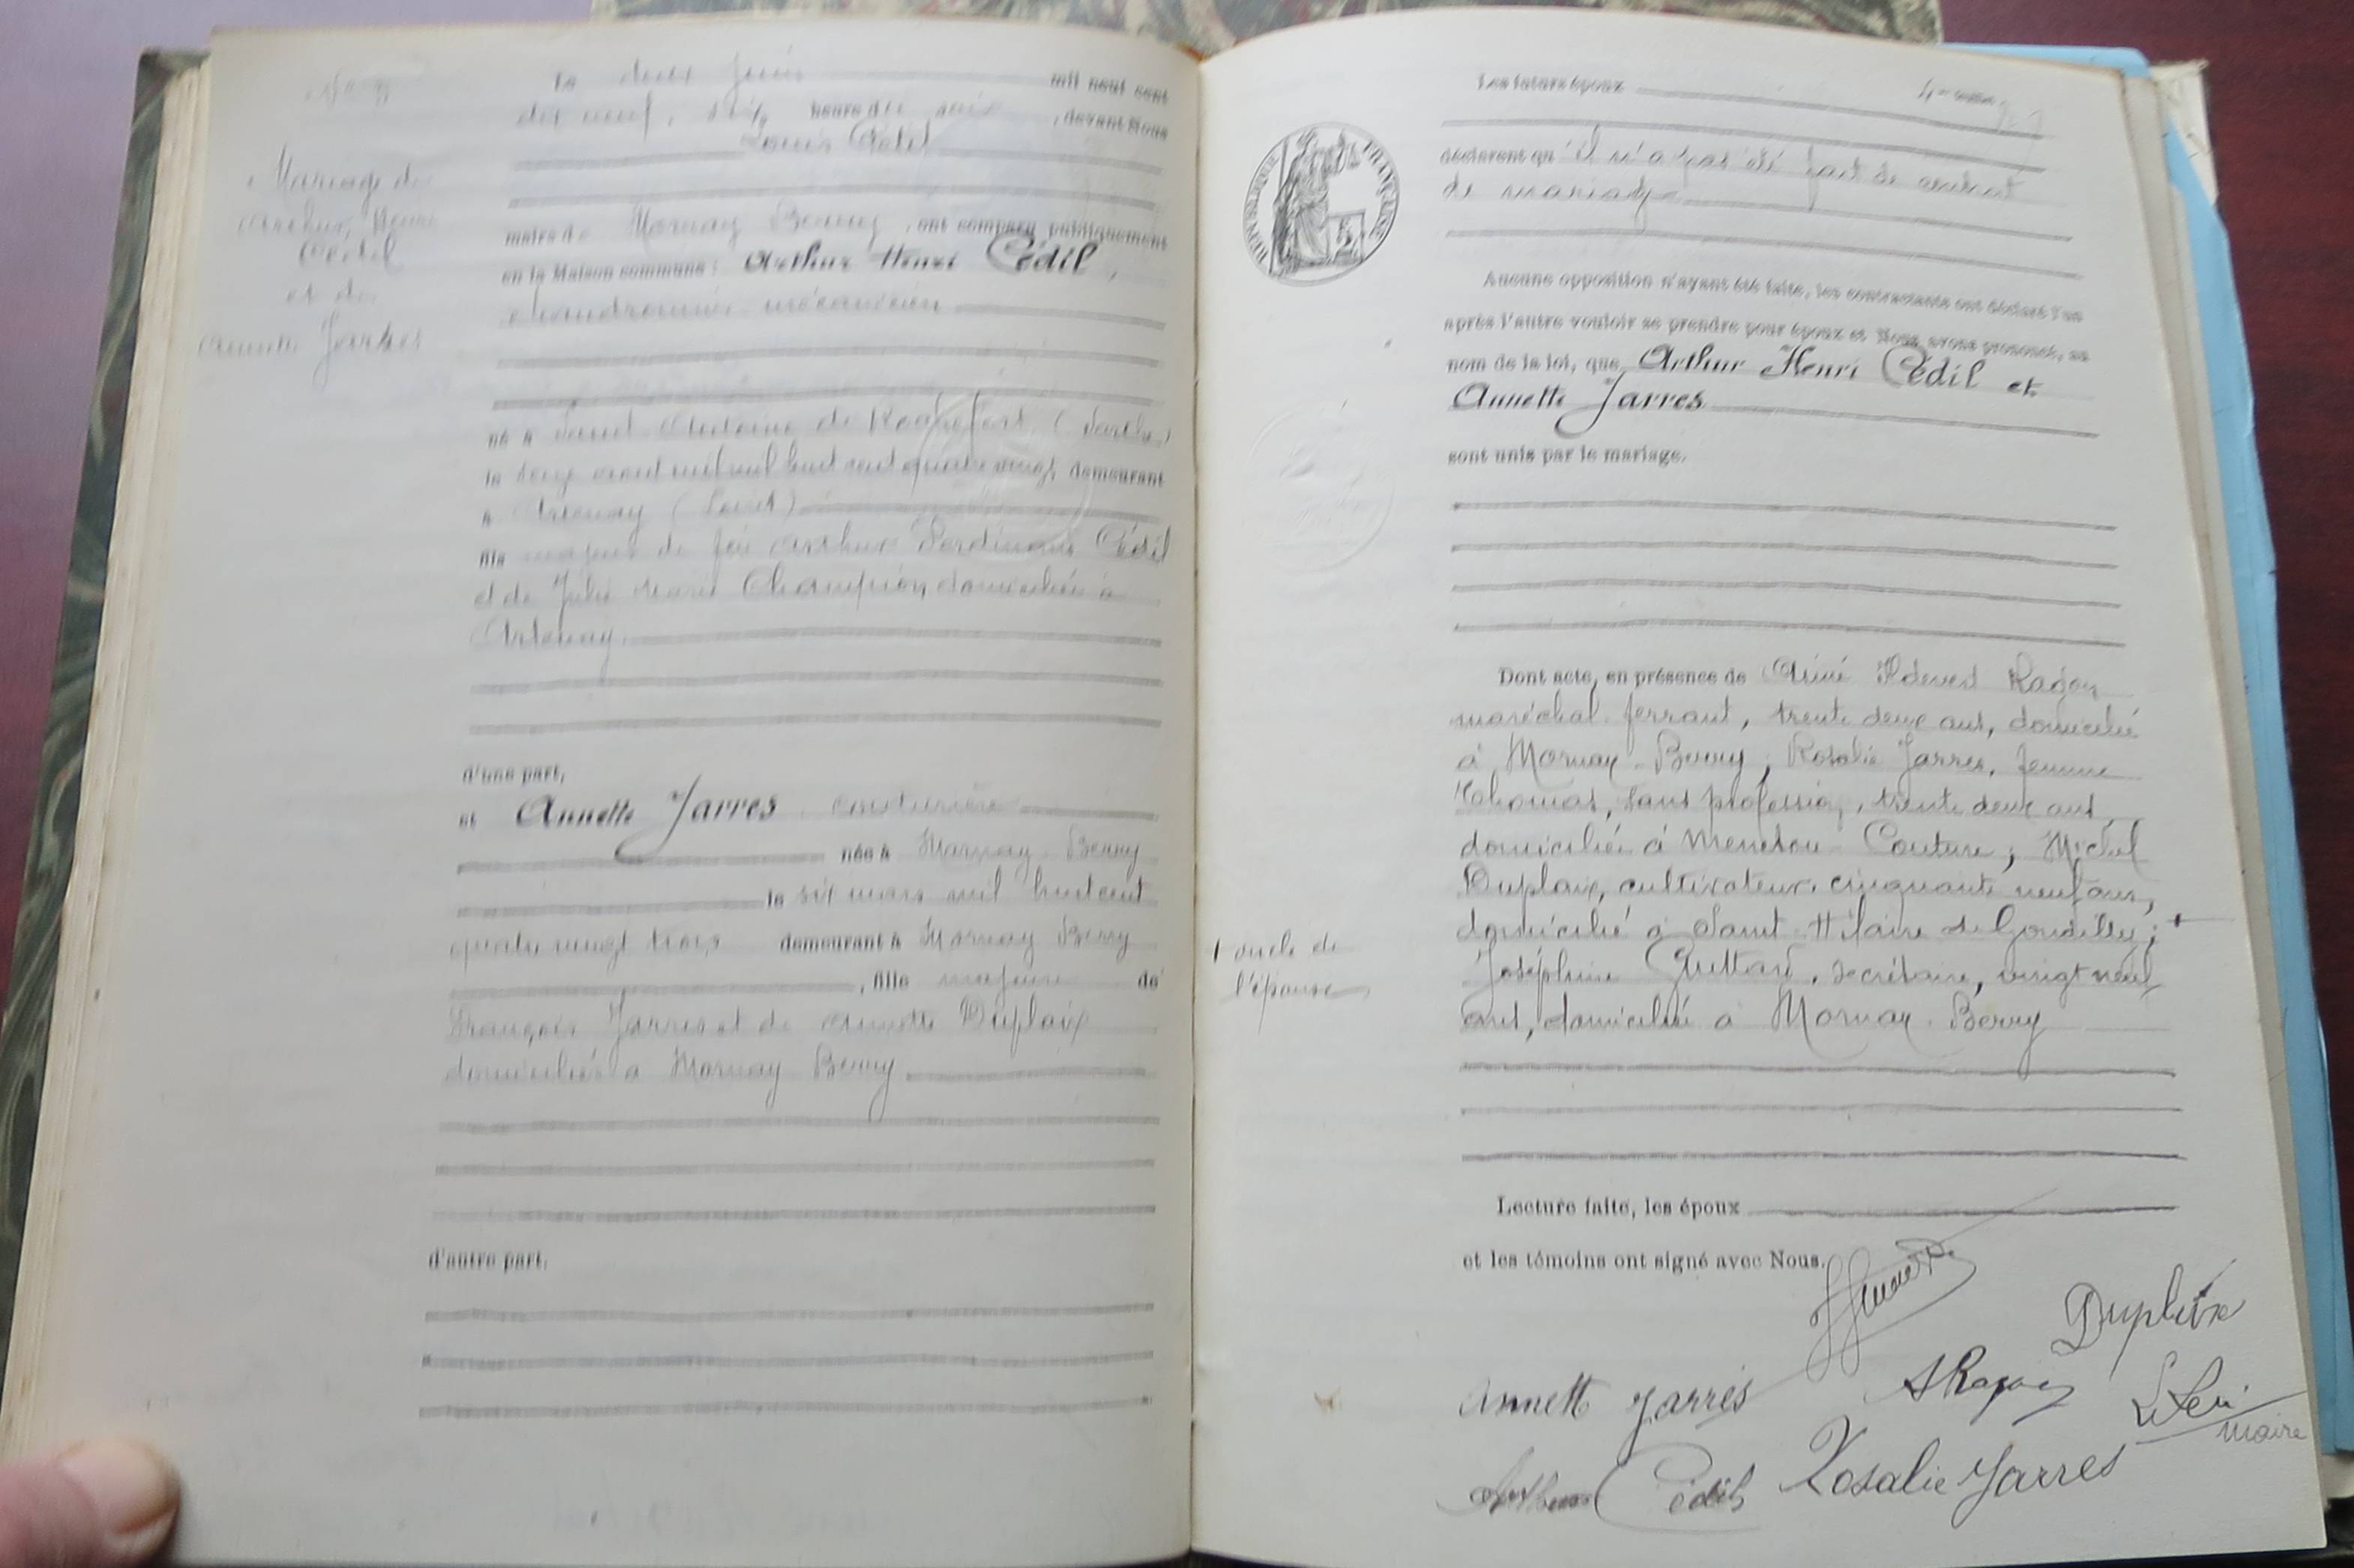 Le deux Juin mil neuf cent
dix neuf, heure du soir, devant Nous
Louis
maire de Mornay Berry, ont comparu publiquement
en la Maison commune: Arthur Henri Cédil,
chaudronnier mécanicien
né à Saint Antoine de Rochefort (Sarthe)
le août mil huit cent quatre vingt, demeurant
à Artenay (Loiret)
fils majeur de feu Arthur Ferdinand Cédil
et de Julie Marie Champion, domiciliée à
Artenay.
d'une part,
et Annette Jarres couturière
née à Mornay Berry
le six mars mil huit cent
quatre vingt trois demeurant à Mornay Berry
, fille majeure de
François Jarres et de Annette Duplaix
domiciliés à Mornay Berry
d'autre part,
Mariage de
Arthur, Henri
Cédil
et de
Annette Jarres
Les futurs époux
déclarent qu'il n'a pas été fait de contrat
de mariage
Aucune opposition n'ayant été faite, les contractants ont déclaré l'un
après l'autre vouloir se prendre pour époux et Nous avons prononcé, au
nom de la loi, que Arthur Henri Cédil et
Annette Jarres
sont unis par le mariage.
Dont acte, en présence de Aimé Ragon
maréchal-ferrant, trente deux ans, domicilié
à Mornay-Berry; Rosalie Jarres, femme
Thomas, sans profession, trente deux ans,
domiciliée à Menetou-Couture; Michel
Duplaix, cultivateur, cinquante neuf ans,
domicilié à Saint-Hilaire de Gondilly;
Joséphine secrétaire, vingt neuf
ans, domiciliée à Mornay-Berry
oncle de
l'épouse
Lecture faite, les époux
et les témoins ont signé avec Nous.
Duplaix
Annette Jarres
A Ragon
maire
Arthur Cédil
Rosalie Jarres
RÉPUBLIQUE FRANÇAISE